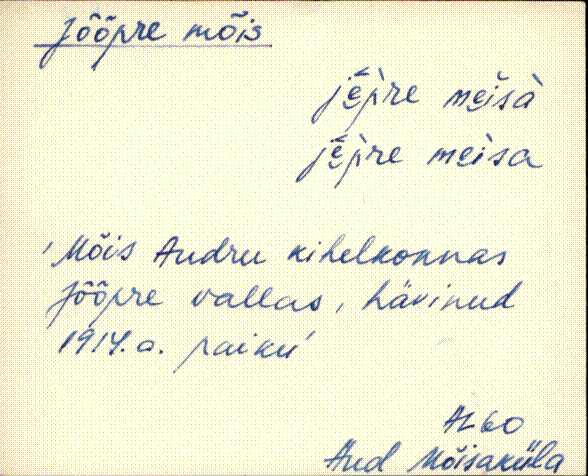 Jõõpre mõis
jẽp̀re mei̮sà
jẽp̀re mei̮sa
'Mõis Audru kihelkonnas
Jõõpre vallas, hävinud
1914.a. paiku'
AL60
Aud Mõisaküla